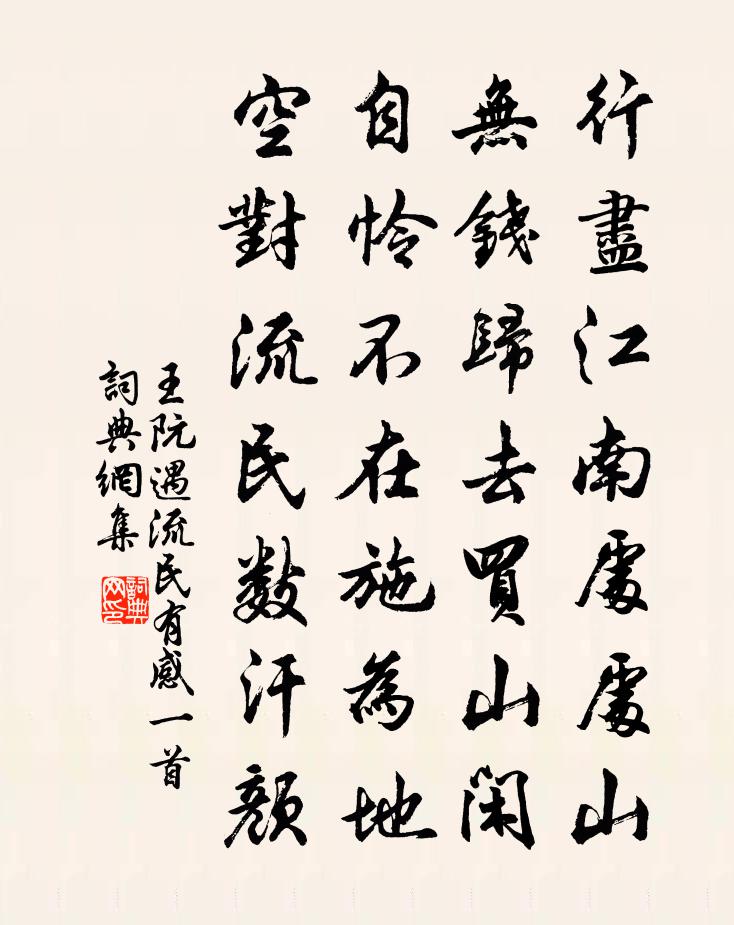 行盡江南處處山
無錢歸去買山閑
自憐不在施為地
空對流民數汗顏
王阮遇流民有感一首
詞典網集
詞典网印